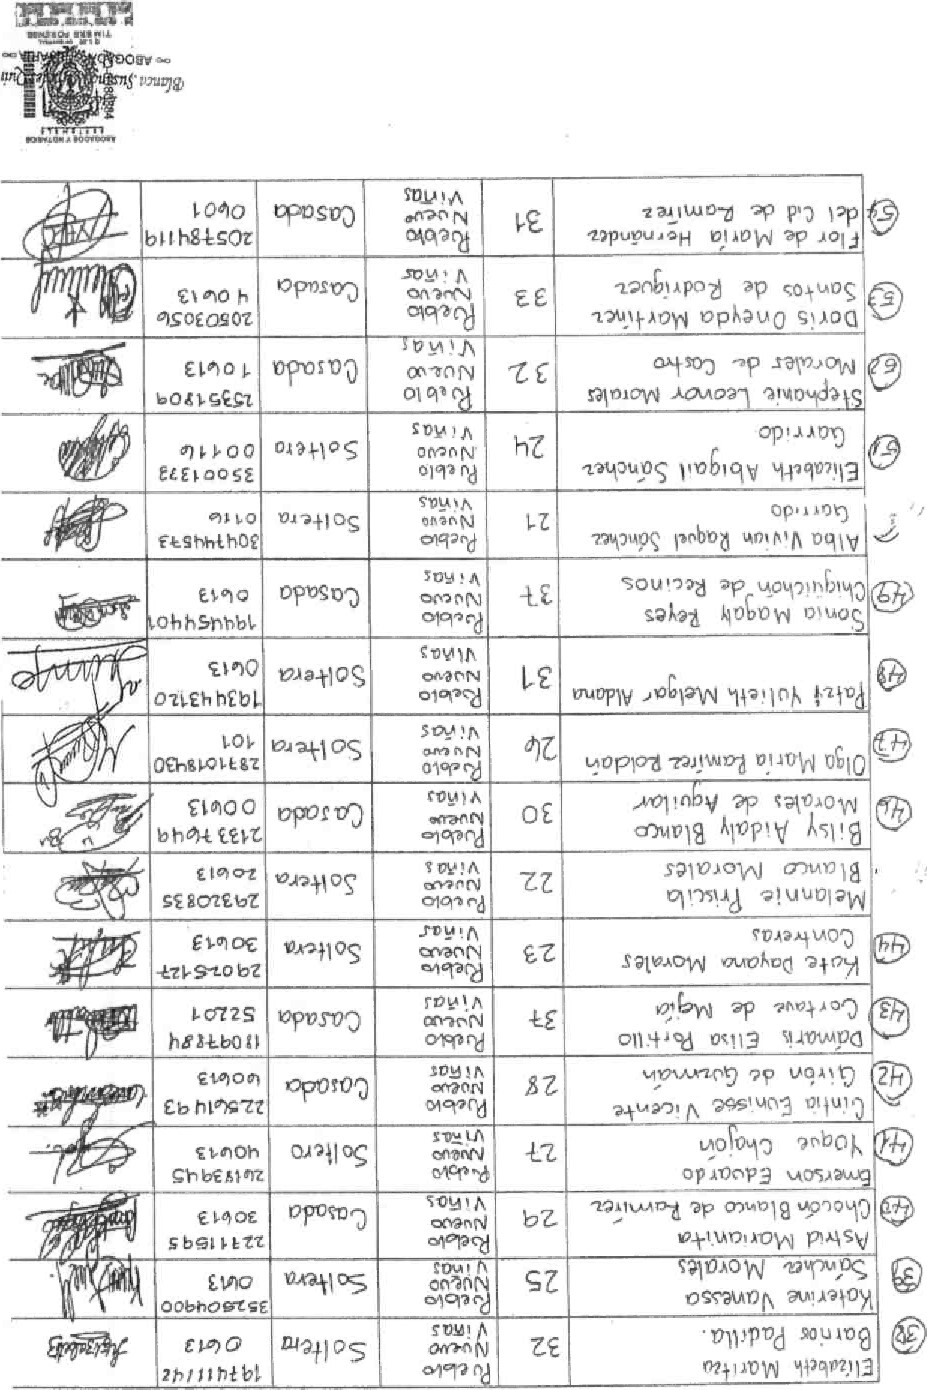 38 Elizabeth Maritza Barrios Padilla. 32 Pueblo Nuevo Viñas Soltera 197411142 0613
39 Katerine Vanessa Sánchez Morales 25 Pueblo Nuevo Viñas Soltera 352504900 0613
40 Astrid Marianita Chacón Blanco de Ramírez 29 Pueblo Nuevo Viñas Casada 22711595 30613
41 Emerson Eduardo Yoque Chajón 27 Pueblo Nuevo Viñas Soltero 26193945 40613
42 Cintia Eunisse Vicente Girón de Guzmán 28 Pueblo Nuevo Viñas Casada 22561493 60613
43 Dámaris Elisa Portillo Cortave de Mejía 37 Pueblo Nuevo Viñas Casada 18097884 52201
44 Kate Dayana Morales Contreras 23 Pueblo Nuevo Viñas Soltera 29025127 30613
Melannie Priscila Blanco Morales 22 Pueblo Nuevo Viñas Soltera 29320835 20613
46 Bilsy Aidaly Blanco Morales de Aguilar 30 Pueblo Nuevo Viñas Casada 21337649 00613
47 Olga María Ramírez Roldán 26 Pueblo Nuevo Viñas Soltera 2871018430 101
48 Patzy Yulieth Melgar Aldana 31 Pueblo Nuevo Viñas Soltera 193443120 0613
49 Sonia Magaly Reyes Chiquichón de Recinos 37 Pueblo Nuevo Viñas Casada 194454401 0613
Alba Vivian Raquel Sánchez Garrido 21 Pueblo Nuevo Viñas Soltera 304744573 0116
51 Elizabeth Abigail Sánchez Garrido 24 Pueblo Nuevo Viñas Soltero 35001373 00116
52 Stephanie Leonor Morales Morales de Castro 32 Pueblo Nuevo Viñas Casada 25351809 10613
53 Doris Oneyda Martínez Santos de Rodríguez 33 Pueblo Nuevo Viñas Casada 20503056 40613
54 Flor de María Hernández del Cid de Ramírez 31 Pueblo Nuevo Viñas Casada 205784119 0601
ABOGADOS Y NOTARIOS
Blanca Susana
ABOGADA
TIMBRE FORENSE